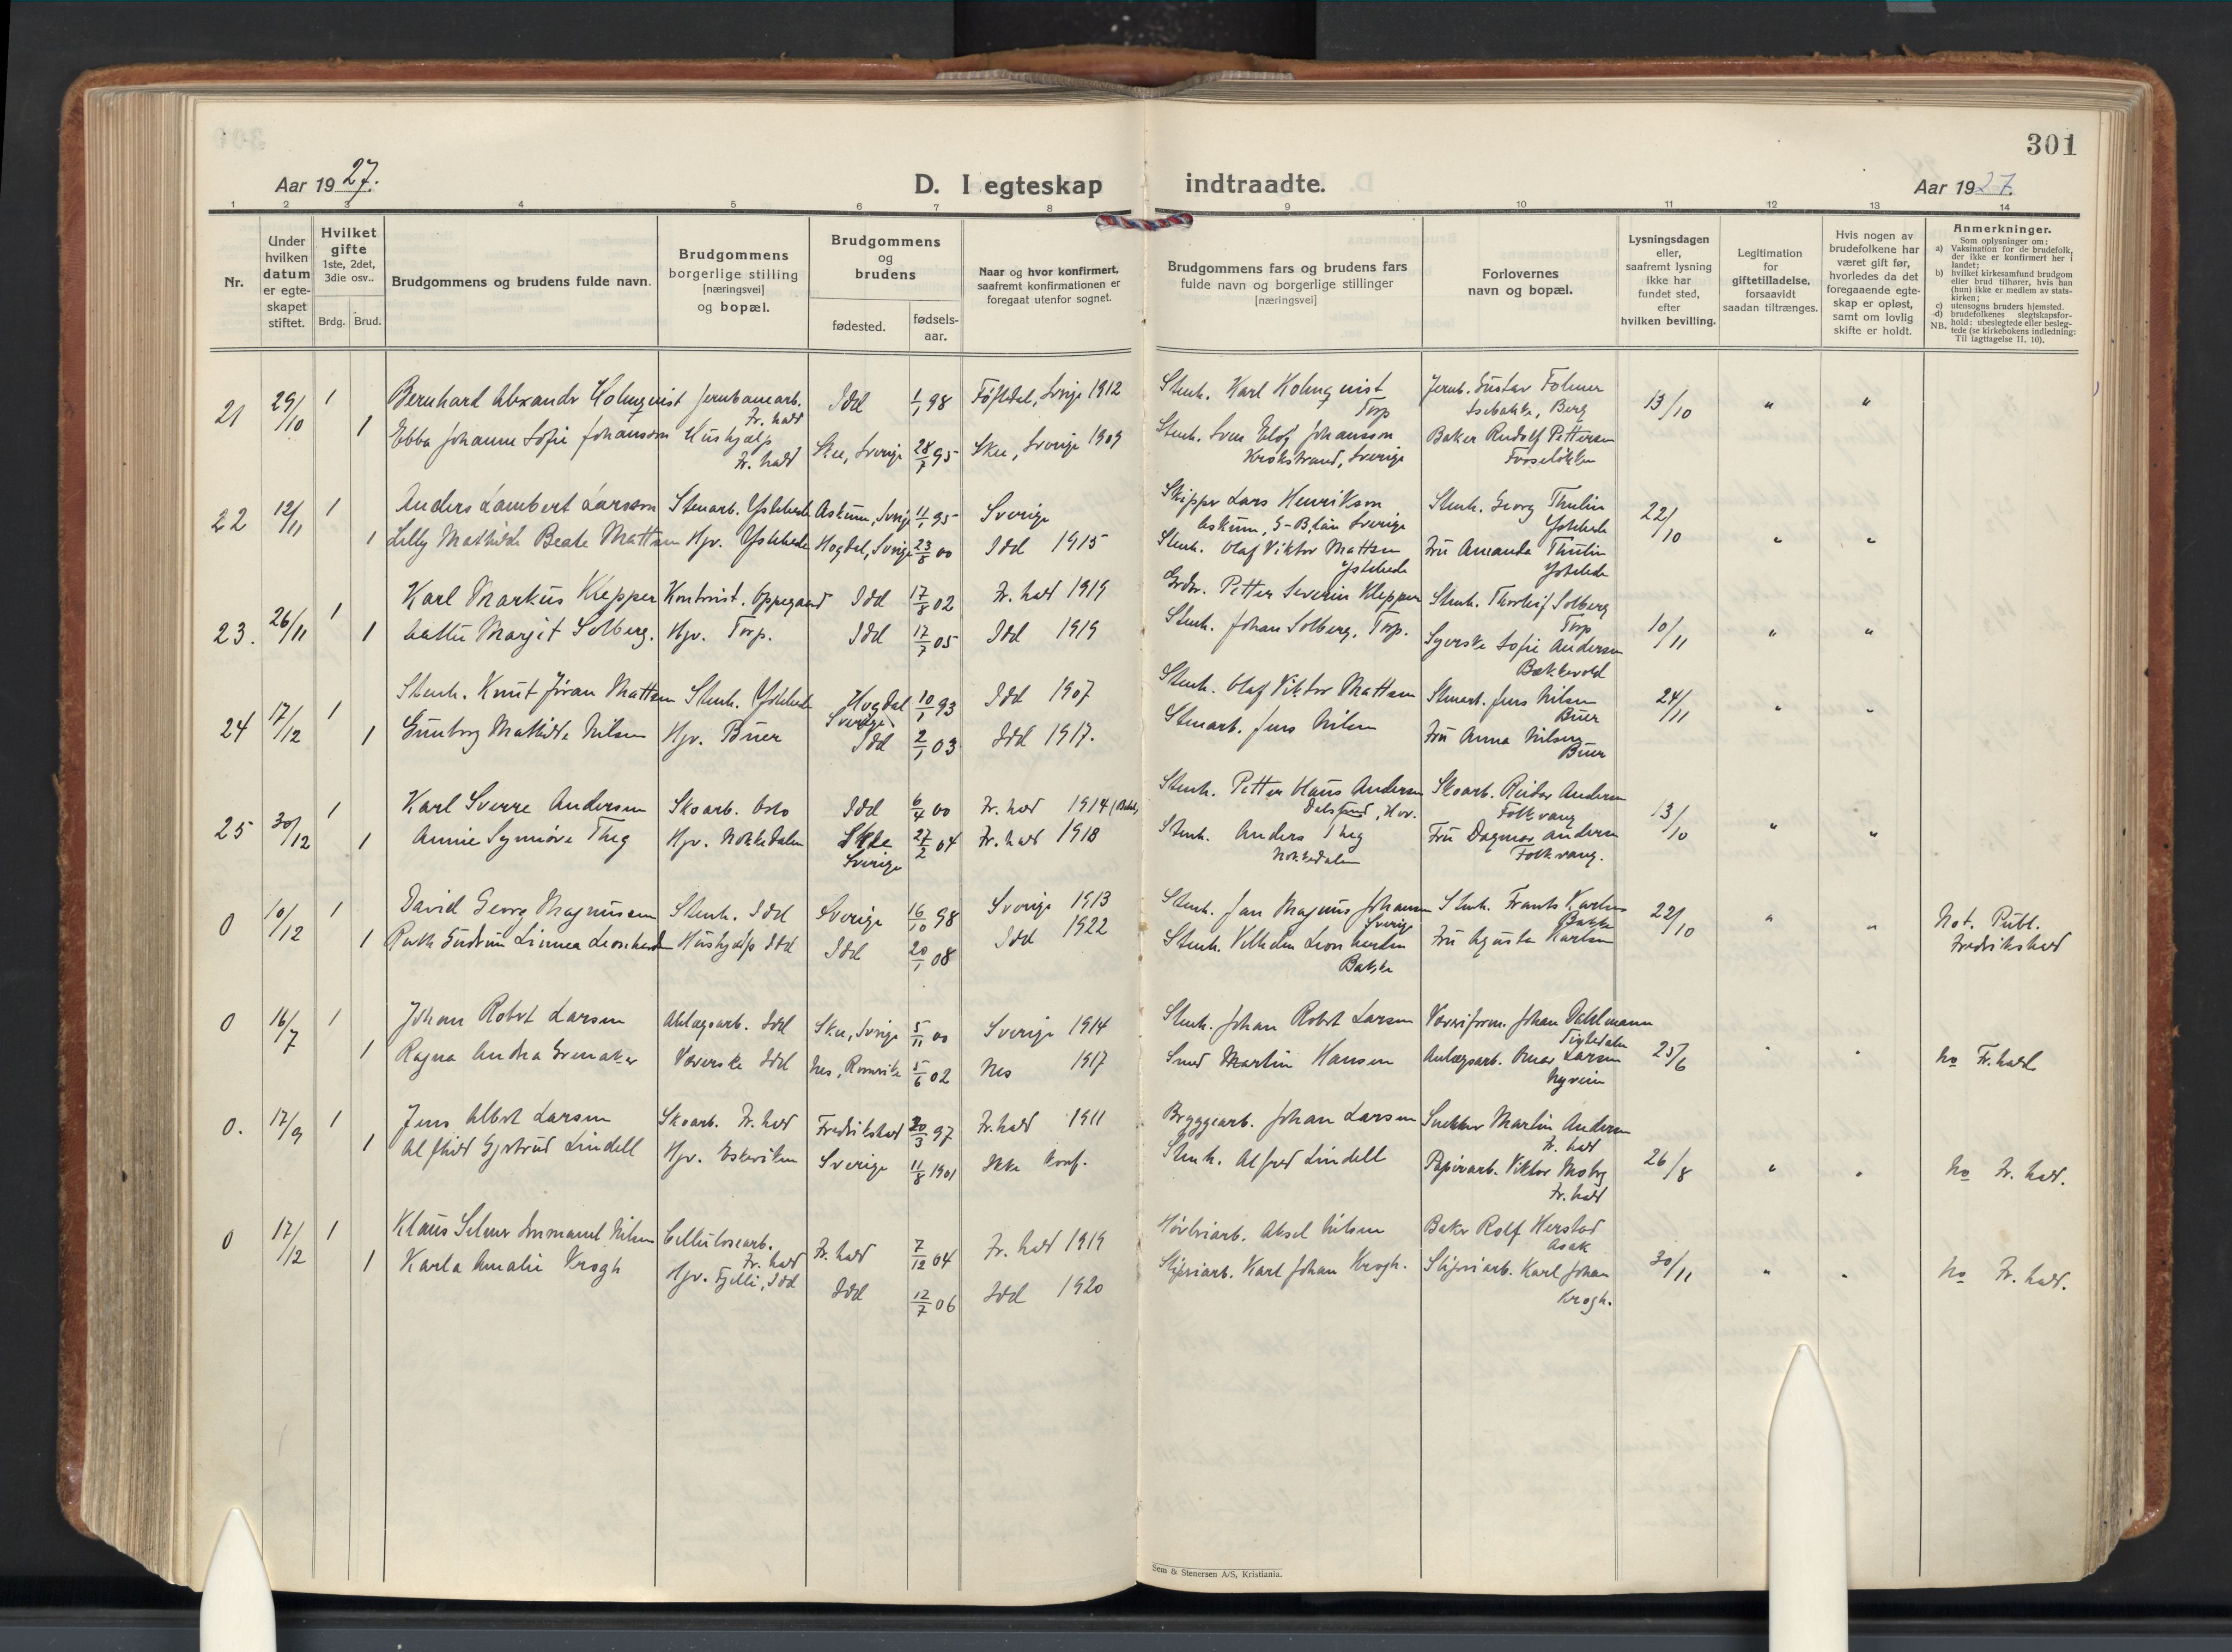 301
Aar 1927.
D. I egteskap indtraadte.
Aar 1927.
1 2 3 4 5 6 7 8 9 10 11 12 13 14
Nr.
Under hvilken datum er egte-skapet stiftet.
Hvilket gifte 1ste, 2det, 3die osv..
Brdg. Brud.
Brudgommens og brudens fulde navn.
Brudgommens borgerlige stilling [næringsvei] og bopæl.
Brudgommens og brudens
fødested.
fødsels-aar.
Naar og hvor konfirmert, saafremt konfirmationen er foregaat utenfor sognet.
Brudgommens fars og brudens fars fulde navn og borgerlige stillinger [næringsvei]
Forlovernes navn og bopæl.
Lysningsdagen eller, saafremt lysning ikke har fundet sted, efter hvilken bevilling.
Legitimation for giftetilladelse, forsaavidt saadan tiltrænges.
Hvis nogen av brudefolkene har været gift før, hvorledes da det foregaaende egte-skap er opløst, samt om lovlig skifte er holdt.
Anmerkninger.
Som oplysninger om:
a) Vaksination for de brudefolk, der ikke er konfirmert her i landet;
b) hvilket kirkesamfund brudgom eller brud tilhører, hvis han (hun) ikke er medlem av stats-kirken;
c) utensogns bruders hjemsted.
d) brudefolkenes slegtskapsfor-hold: ubeslegtede eller besleg-tede (se kirkebokens indledning: Til Iagttagelse II. 10).
NB.
21 29/10 1 Bernhard Alexander Holmqvist Jernbanearb. Fr.hald Idd 1/1 98 Töftedal, Sverige 1912 Stenh. Karl Holmqvist Torp Jernb. Gustav Folmer Isebakke, Berg 13/10 " "
1 Ebba Johanne Sofie Johansson Hushjælp Fr. hald Skee, Sverige 28/7 95 Skee, Sverige 1909 Stenh. Sven Elof Johansson Krokstrand, Sverige Baker Rudolf Pettersen
22 12/11 1 Anders Lambert Larsson Stenarb. Ystehede Askum, Sverige 11/1 95 Sverige Skipper Lars Henrikson Askum, G-B, län Sverige Stenh. Georg Thulin Ystehede 22/10 " "
1 Lilly Mathilde Beate Mattsen Hjv. Ystehede Hogdal, Sverige 23/8 00 Idd 1915 Stenh. Olaf Viktor Mattsen Ystehede Fru Amanda Thulin Ystehede
23. 26/11 1 Karl Markus Klepper Kontorist. Oppegaard Idd 17/8 02 Fr. hald 1919 Grdbr. Petter Severin Klepper Stenh. Thorleif Solberg Torp 10/11 " "
1 Marjit Solberg. Hjv. Torp. Idd 17/7 05 Idd 1919 Stenh. Johan Solberg, Torp. Syerske Sofie Andersen Bakkevold
24 17/12 1 Stenh. Knut Jöran Mattsen Stenh. Ystehede Hogdal Sverige 10/1 93 Idd 1907 Stenh. Olaf Viktor Mattsen Stenarb. Jens Nilsen Buer 24/11 " "
1 Gunborg Mathilde Nilsen Hjv. Buer Idd 2/1 03 Idd 1917. Stenarb. Jens Nilsen Fru Anna Nilsen Buer
25 30/12 1 Karl Sverre Andersen Skoarb. Oslo Idd 6/4 00 Fr. hald 1914 Stenh. Petter Hans Andersen Skoarb. Reidar Andersen Folkvang 13/10 " "
1 Annie Synnöve Theg Hjv. Nokkedalen Skee Sverige 27/2 04 Fr. hald 1918 Stenh. Anders Theg Nokkedalen Fru Dagmar Andersen Folkvang.
0 10/12 1 David Georg Magnussen Stenh. Idd Sverige 16/10 98 Sverige 1913 Stenh. Jan Magnus Johansen Sverige Stenh. Frants Karlsen Bakke 22/10 " " Not. Publ. Fredrikshald
1 Ruth Gudrun Linnea Leonhardsen Hushjælp Idd Idd 20/1 08 Idd 1922 Stenh. Vilhelm Leonhardsen Bakke Fru Agusta Karlsen
0 16/7 1 Johan Robert Larsen Anlægsarb. Idd Skee, Sverige 5/11 00 Sverige 1914 Stenh. Johan Robert Larsen Væveriform. Johan Dahlmann Tistedalen 25/6 " " No Fr.hald
1 Ragna Andrea Grenaker Væverske Idd Nes, Romerike 5/6 02 Nes 1917 Smed Martin Hansen Anlægsarb. Omar Larsen Nyveien
0. 17/9 1 Jens Albert Larsen Skoarb. Fr. hald Fredrikshald 20/3 97 Fr.hald 1911 Bryggearb. Johan Larsen Snekker Martin Andersen Fr. hald 26/8 " " No Fr. hald.
1 Alfhild Gjertrud Lindell Hjv. Eskeviken Sverige 11/8 1901 Ikke konf. Stenh. Alfred Lindell Papirarb. Viktor Moberg Fr. hald
0 17/12 1 Klaus Selmer Immanuel Nilsen Cellulosearb. Fr. hald Fr. hald 7/12 04 Fr. hald 1919 Høvleriarb. Aksel Nilsen Baker Rolf Herstad Asak 30/11 " " No Fr. hald.
1 Karla Amalie Krogh Hjv. Fjelli, Idd Idd 12/7 06 Idd 1920 Sliperiarb. Karl Johan Krogh. Sliperiarb. Karl Johan Krogh.
Sem & Stenersen A/S, Kristiania.